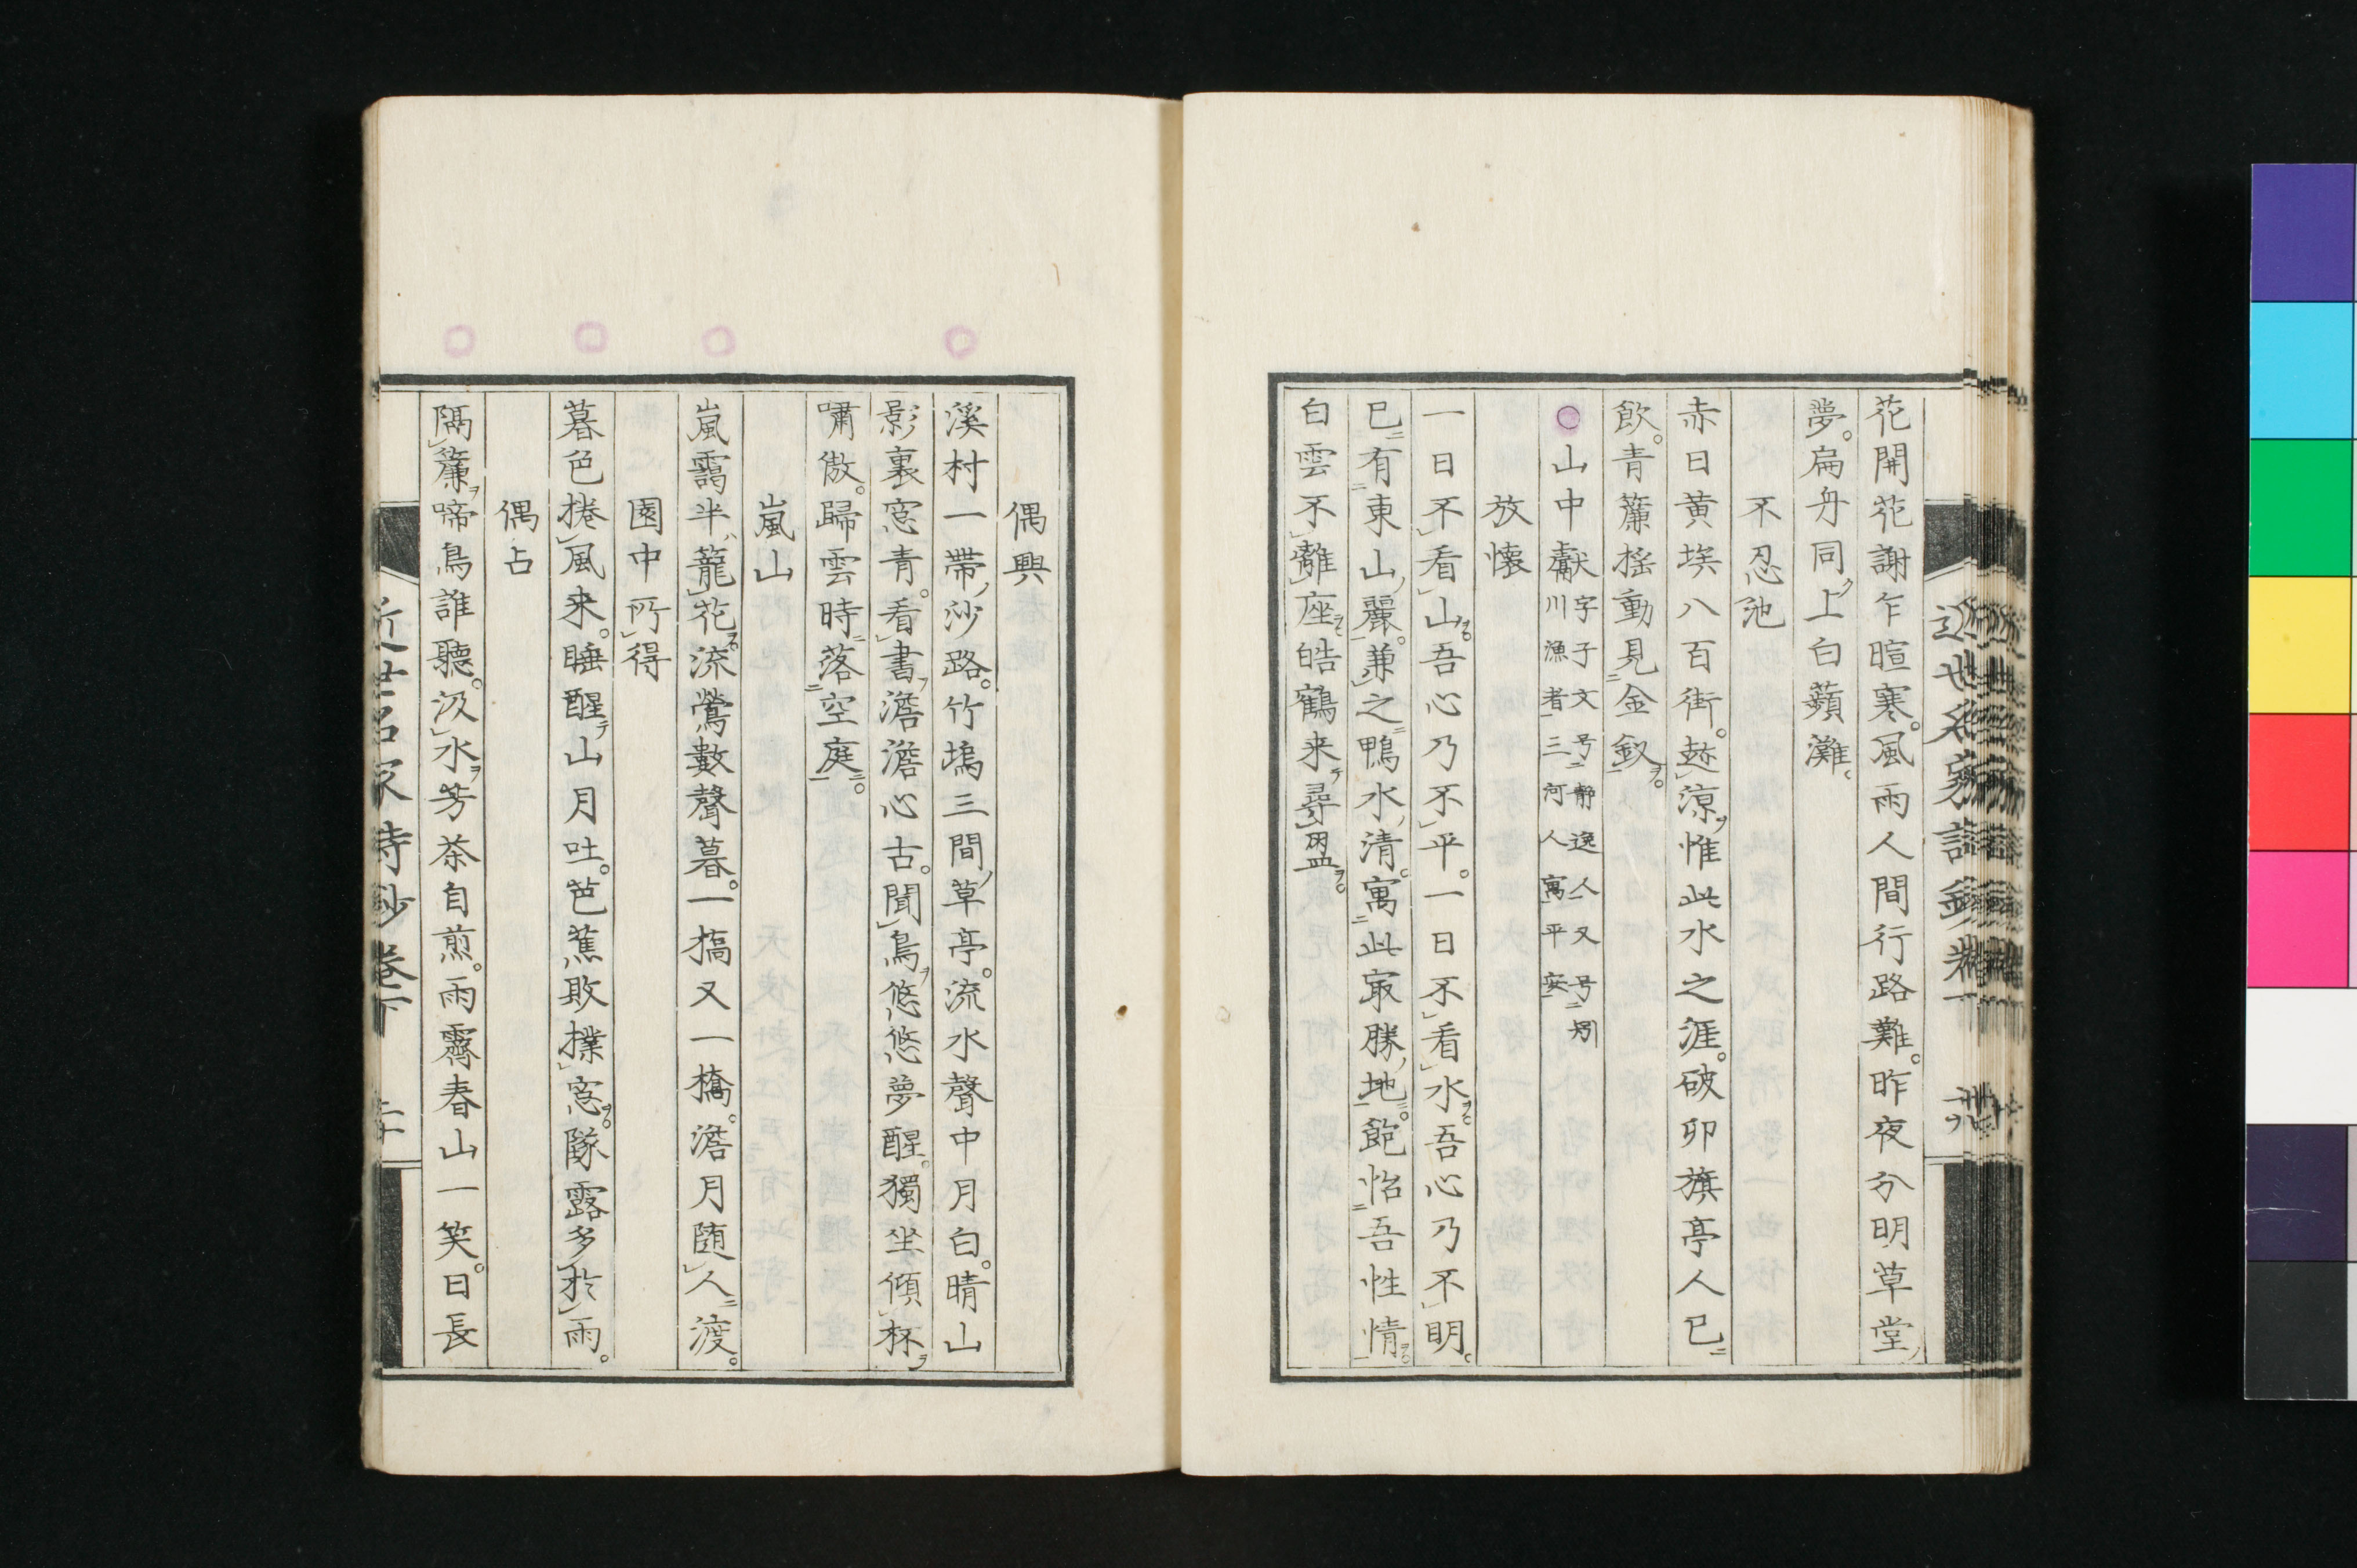 花開花謝乍暄寒。風雨人間行路難。昨夜分明草堂ノ
夢。扁舟同ク上白蘋灘。
不忍池
赤日黄埃八百街。趂涼ヲ惟此水之涯。破卯旗亭人已ニ
飲。青簾揺動見ニ金釵一ヲ。
○山中獻字子文号ニ静逸人一又号ニ菊
川漁者一三河人寓平安一
放懐
一日不看山ヲ。吾心乃不平。一日不看水ヲ。吾心乃不明。
已ニ有ニ東山ノ麗一。兼之ニ鴨水ノ清。寓ニ此寂勝ノ地一ニ。飽怡ニ吾性情一ヲ。
白雲不離座ヲ。皓鶴来テ尋盟ヲ。
近世名家詩鈔卷下
偶興
溪村一帶ノ沙路。竹塢三間ノ草亭。流水聲中月白。晴山
影裏窓青。看書ヲ澹澹心古。聞鳥ヲ悠悠夢醒。獨坐傾杯ヲ
嘯傲。歸雲時ニ落ニ空庭一ニ。
嵐山
嵐靄半ハ籠花ヲ。流鶯數聲暮。一搞又一橋。澹月随人ニ渡。
園中所得
暮色捲風来。睡醒テ山月吐。芭蕉敗撲窓ヲ。隊露多於雨。
偶占
隔簾ヲ啼鳥誰聽。汲水ヲ芳茶自煎。雨霽春山一笑。日長
近世名家詩鈔卷下